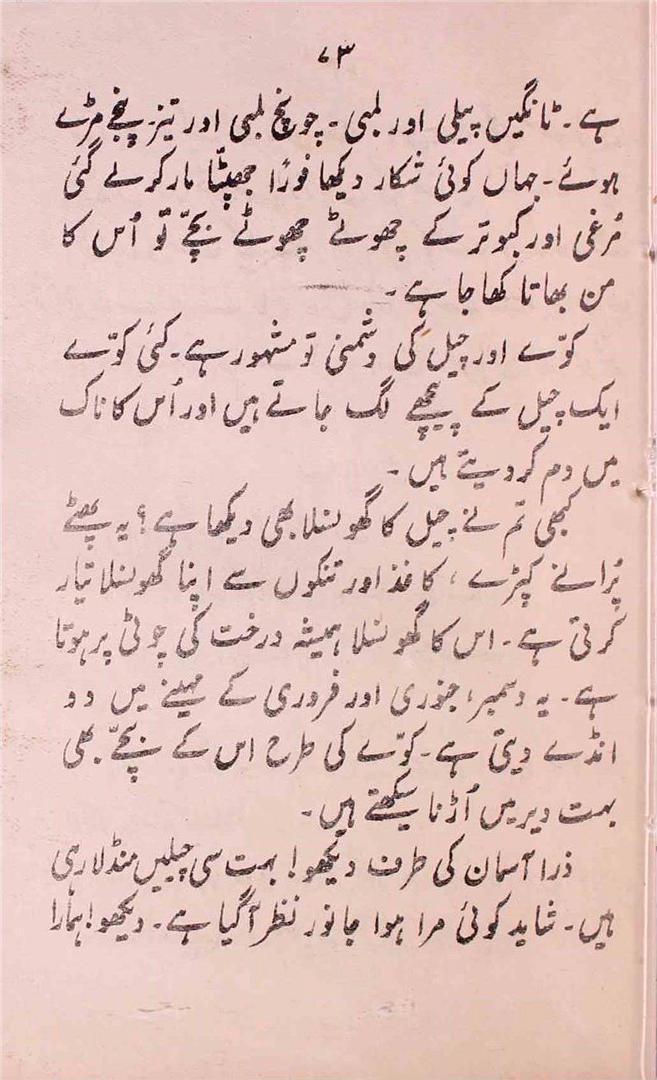 ۷۳
ہے۔ ٹانگیں پیلی اور لمبی۔ چونچ لمبی اور تیز۔ پنجے مڑے
ہوئے۔ جہاں کوئی شکار دیکھا فوراً جھپٹّا مار کر لے گئی
مُرغی اور کبوتر کے چھوٹے چھوٹے بچّے تو اُس کا
من بھاتا کھاجا ہے۔
کوّے اور چیل کی دشمنی تو مشہور ہے۔ کئی کوّے
ایک چیل کے پیچھے لگ جاتے ہیں اور اُس کا ناک
میں دم کر دیتے ہیں۔
کبھی تم نے چیل کا گھونسلا بھی دیکھا ہے؟ یہ پھٹے
پُرانے کپڑے، کاغذ اور تنکوں سے اپنا گھونسلا تیار
کرتی ہے۔ اس کا گھونسلا ہمیشہ درخت کی چوٹی پر ہوتا
ہے۔ یہ دسمبر، جنوری اور فروری کے مہینے میں دو
انڈے دیتی ہے۔ کوّے کی طرح اس کے بچّے بھی
بہت دیر میں اُڑنا سیکھتے ہیں۔
ذرا آسمان کی طرف دیکھو! بہت سی چیلیں منڈلا رہی
ہیں۔ شاید کوئی مرا ہوا جانور نظر آگیا ہے۔ دیکھو! ہمارا